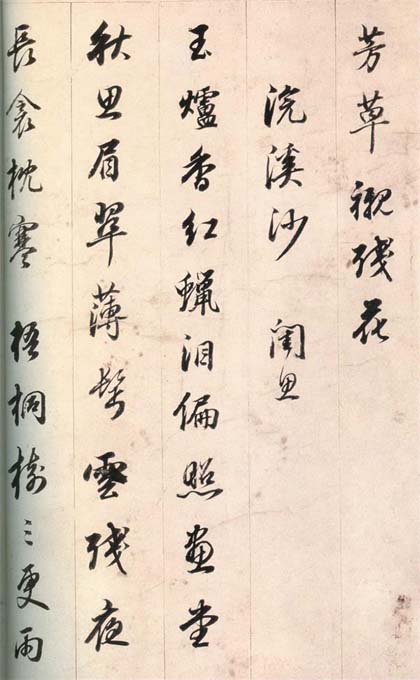 芳草襯殘花
浣溪沙 閨思
玉爐香紅蠟泪偏照畫堂
秋思眉翠薄鬢雲殘夜
長衾枕寒梧桐樹三更雨